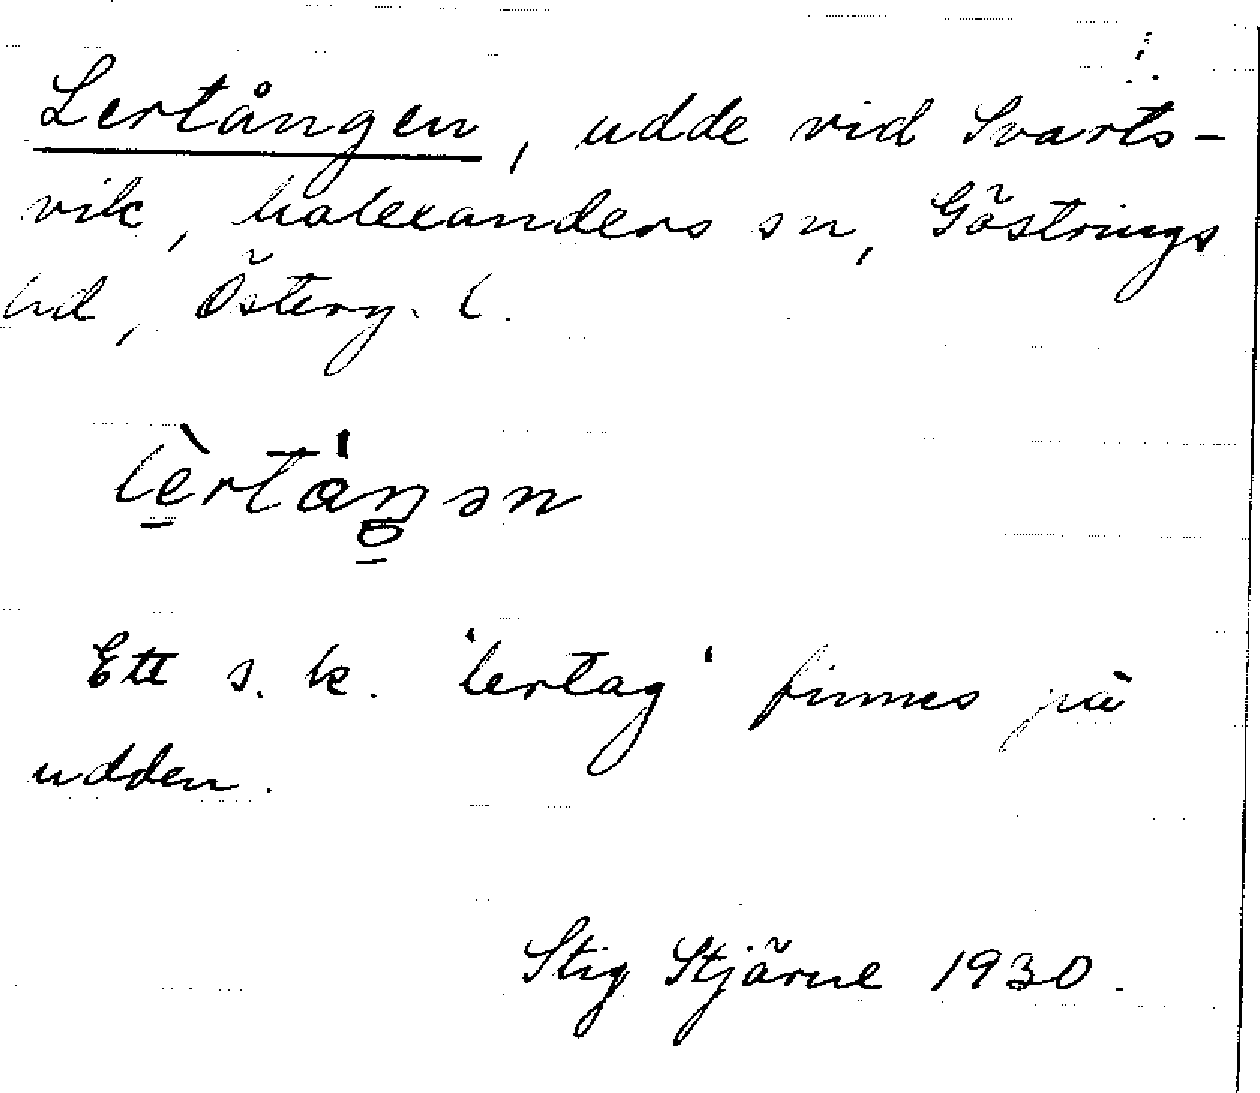 Lertången, udde vid Svarts-
vik, Västra sn, Göstrings
hd, Österg. l.
lèrtåŋən
Ett s. k. 'lertag' finnes på
udden.
Stig Stjärne 1930.